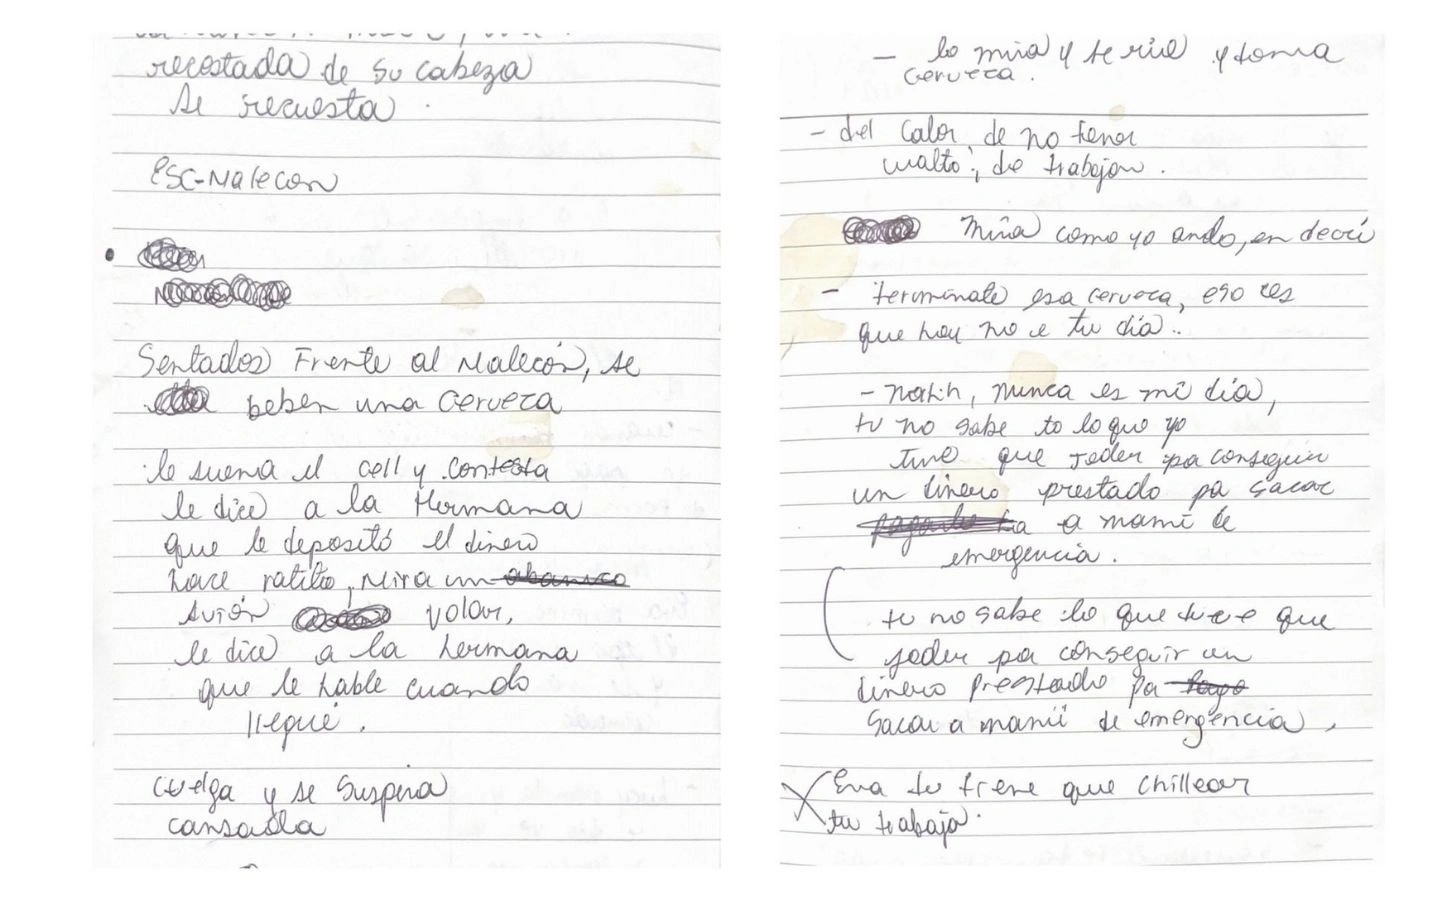 recostada de su cabeza
se recuesta.
ESC-Malecon
Sentados Frente al Malecón, se
beben una cerveza
le suena el cell y contesta
le dice a la Hermana
que le depositó el dinero
hace ratito, Mira un abanico
avión volar,
le dice a la hermana
que le hable cuando
llegué.
cuelga y se suspira
cansada
- lo mira y se rie y toma
cerveza.
- del calor, de no tener
malto, de trabajar.
Mira como yo ando, en decri
- terminate esa cerveza, eso es
que hoy no e tu día..
- Nathh, nunca es mi día,
tu no sabe to lo que yo
tuve que joder pa conseguir
un dinero prestado pa sacar
a mami de
emergencia.
tu no sabe lo que tuve que
joder pa conseguir un
dinero prestado pa pago
sacar a mami de emergencia,
Eva tu tiene que chillear
tu trabaja.